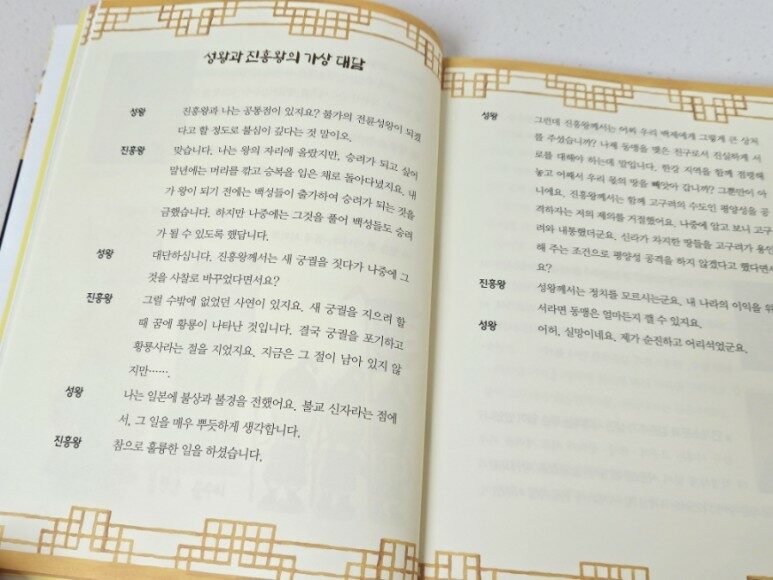 성왕과 진흥왕의 가상 대담
성왕 진흥왕과 나는 공통점이 있지요? 불가의 전륜성왕이 되겠
다고 할 정도로 불심이 깊다는 것 말이오.
진흥왕 맞습니다. 나는 왕의 자리에 올랐지만, 승려가 되고 싶어
말년에는 머리를 깎고 승복을 입은 채로 돌아다녔지요. 내
가 왕이 되기 전에는 백성들이 출가하여 승려가 되는 것을
금했습니다. 하지만 나중에는 그것을 풀어 백성들도 승려
가 될 수 있도록 했답니다.
성왕 대단하십니다. 진흥왕께서는 새 궁궐을 짓다가 나중에 그
것을 사찰로 바꾸었다면서요?
진흥왕 그럴 수밖에 없었던 사연이 있지요. 새 궁궐을 지으려 할
때 꿈에 황룡이 나타난 것입니다. 결국 궁궐을 포기하고
황룡사라는 절을 지었지요. 지금은 그 절이 남아 있지 않
지만…….
성왕 나는 일본에 불상과 불경을 전했어요. 불교 신자라는 점에
서, 그 일을 매우 뿌듯하게 생각합니다.
진흥왕 참으로 훌륭한 일을 하셨습니다.
성왕 그런데 진흥왕께서는 어찌 우리 백제에게 그렇게 큰 상처
를 주셨습니까? 나제 동맹을 맺은 친구로서 진실하게 서
로를 대해야 하는데 말입니다. 한강 지역을 함께 점령해
놓고 어째서 우리 몫의 땅을 빼앗아 갑니까? 그뿐만이 아
니에요. 진흥왕께서는 함께 고구려의 수도인 평양성을 공
격하자는 저의 제의를 거절했어요. 나중에 알고 보니 고구
려와 내통했더군요. 신라가 차지한 땅들을 고구려가 용인
해 주는 조건으로 평양성 공격을 하지 않겠다고 했다면서
요?
진흥왕 성왕께서는 정치를 모르시는군요. 내 나라의 이익을 위
서라면 동맹은 얼마든지 깰 수 있지요.
성왕 어허, 실망이네요. 제가 순진하고 어리석었군요.